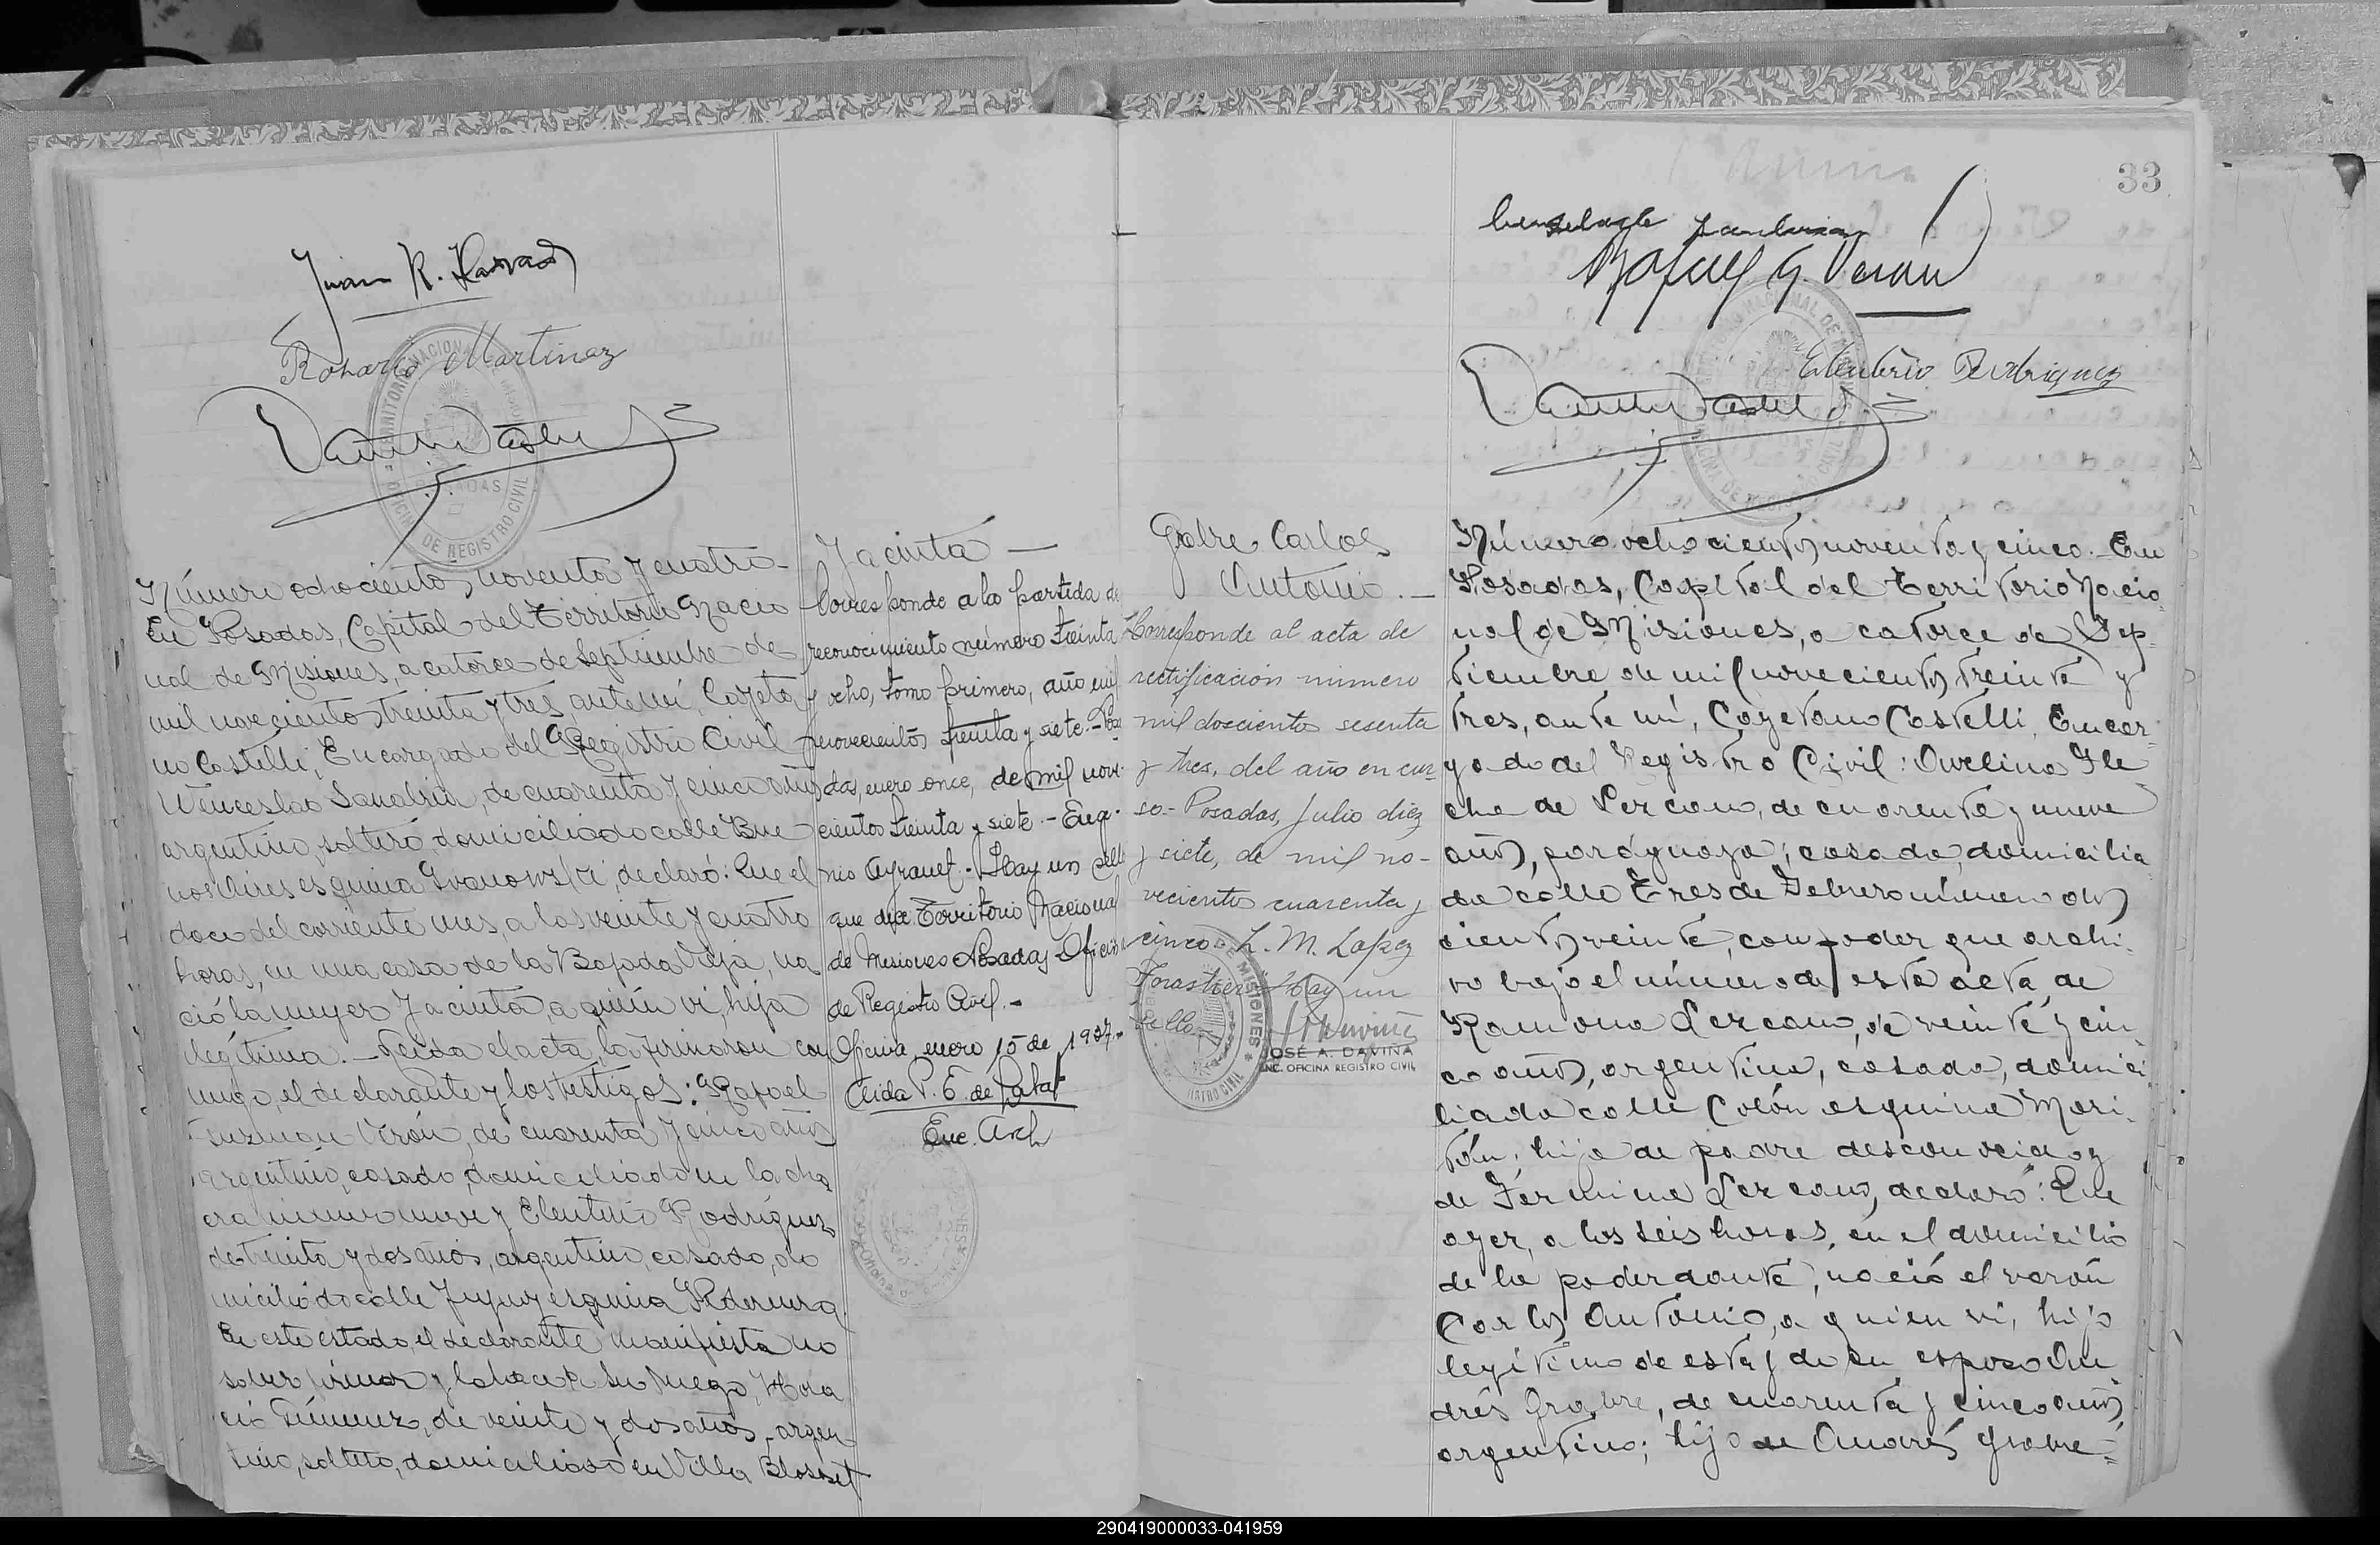 Juan R.
Rosario Martinez
TERRITORIO NACIONAL DE MISIONES
POSADAS
OFICINA DE REGISTRO CIVIL
Número ochocientos noventa y cuatro-
En Posadas, Capital del Territorio Nacio
nal de Misiones, a catorce de Septiembre de
mil novecientos treinta y tres, ante mí, Cayeta
no Castelli, Encargado del Registro Civil
Wenceslao Sanabria, de cuarenta y cinco años
argentino, soltero, domiciliado calle Bue
nos Aires esquina Ivanowski, declaró: Que el
doce del corriente mes, a las veinte y cuatro
horas, en una casa de la Bajada Vieja, na
ció la mujer Jacinta, a quien vi, hija
ilegítima.- Leída el acta, la firmaron con
migo, el declarante y los testigos: Rafael
Guzman Verón, de cuarenta y cinco años
argentino, casado, domiciliado en la cha
cra número nueve y Eleuterio Rodríguez
de treinta y dos años, argentino, casado, do
miciliado calle Jujuy esquina Pedernera.
En este estado, el declarante manifiesta no
saber firmar y lo hace a su ruego, Hora
cio Gimenez, de veinte y dos años, argen
tino, soltero, domiciliado en Villa Blosset
Jacinta —
Corresponde a la partida de
reconocimiento número treinta
y ocho, tomo primero, año mil
novecientos treinta y siete.- Posa
das, enero once, de mil nove-
cientos treinta y siete.- Euge-
nio Ayranet.- Hay un sello
que dice Territorio Nacional
de Misiones Posadas Oficina
de Registro Civil.-
Oficina, enero 15 de 1937.-
Elida P. E. de
Enc. Arch
33
Rafael G. Veron
Eleuterio Rodriguez
Grabre Carlos
Antonio.-
Corresponde al acta de
rectificación número
mil doscientos sesenta
y tres, del año en cur-
so- Posadas, Julio diez
y siete, de mil no-
vecientos cuarenta y
cinco. L. M. Lopez
Forastier Hay un
sello.
JOSÉ A. DAVIÑA
ENC. OFICINA REGISTRO CIVIL
Número ochocientos noventa y cinco.- En
Posadas, Capital del Territorio Nacio
nal de Misiones, a catorce de Sep-
tiembre de mil novecientos treinta y
tres, ante mí, Cayetano Castelli, Encar-
gado del Registro Civil: Avelina Fle
cha de Lezcano, de cuarenta y nueve
años, paraguaya, casada, domicilia
da calle Tres de Febrero número dos
cientos veinte, con poder que archi-
vo bajo el número de esta acta, de
Ramona Lezcano, de veinte y cin
co años, argentina, casada, domici
liada calle Colón esquina Mori-
tán, hija de padre desconocido y
de Fermina Lezcano, declaró: Que
ayer, a las seis horas, en el domicilio
de la poderdante, nació el varón
Carlos Antonio, a quien vi, hijo
legítimo de esta y de su esposo An
drés Grabre, de cuarenta y cinco años
argentino; hijo de Andrés Grabre-
290419000033-041959